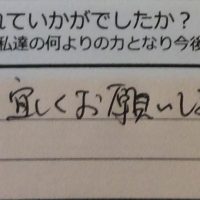 れていかがでしたか？
私達の何よりの力となり今後
宜しくお願いし